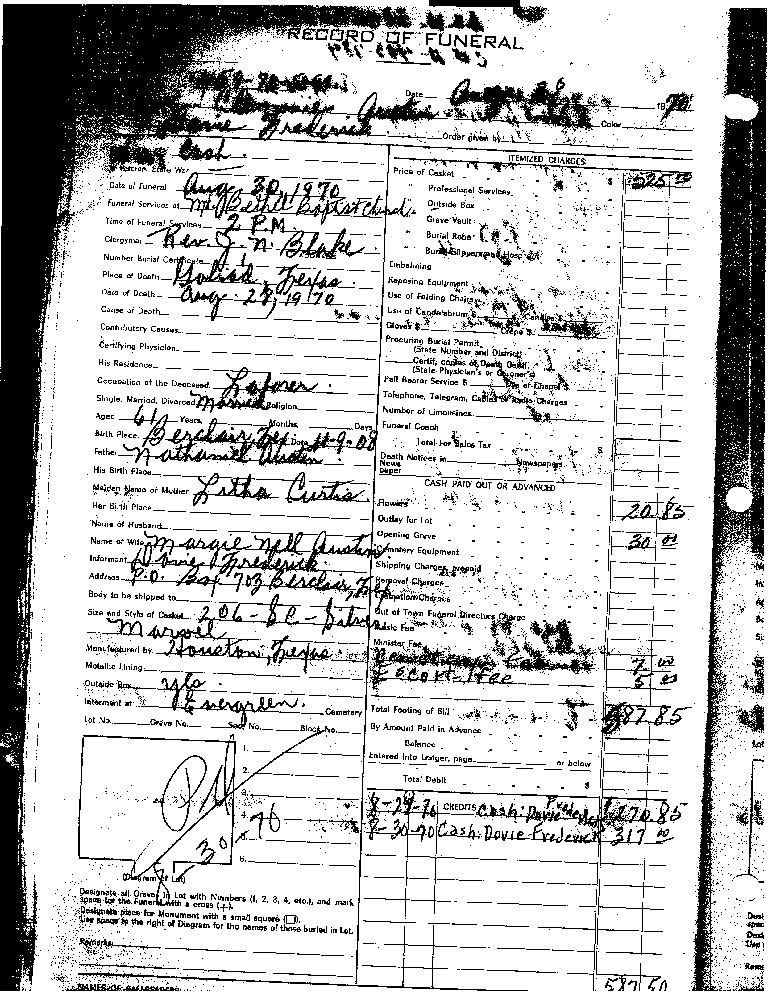 RECORD OF FUNERAL
Date Aug 28 1970
Austin Color
Dovie Frederick Order given by
Cash
Date of Funeral Aug. 30, 1970
Funeral Services at Mt. Bethel Baptist Church
Time of Funeral Services 2 P.M.
Clergyman Rev. J. N. Blake
Number Burial Certificate
Place of Death Goliad, Texas
Date of Death Aug. 27, 1970
Cause of Death
Contributory Causes
Certifying Physician
His Residence
Occupation of the Deceased Laborer
Single, Married, Divorced Married Religion
Age: 61 Years, Months, Days
Birth Place Berclair, Tex Date 11-9-08
Father Nathaniel Austin
His Birth Place
Maiden Name of Mother Litha Curtis
Her Birth Place
Name of Husband
Name of Wife Margie Nell Austin
Informant Dovie Frederick
Address P.O. Box 703 Berclair, Tex
Body to be shipped to
Size and Style of Casket 206-SC-Silver
Marvel
Manufactured by Houston, Texas
Metallic Lining
Outside Box yes
Interment at Evergreen Cemetery
Lot No. Grave No. Sect. No. Block No.
1.
2.
3.
4.
5.
6.
Pd
8 30 70
(Diagram of Lot)
Designate all Graves in Lot with Numbers (1, 2, 3, 4, etc.), and mark
space for the Funeral with a cross (+).
Designate place for Monument with a small square (□).
Use space to the right of Diagram for the names of those buried in Lot.
Remarks:
ITEMIZED CHARGES
Price of Casket $ 525 00
" Professional Services
" Outside Box
" Grave Vault
" Burial Robe
" Burial Slippers and Hose
Embalming
Reposing Equipment
Use of Folding Chairs
Use of Candelabrum $
Gloves $
Procuring Burial Permit
(State Number and District)
Certif. copies of Death Certif.
(State Physician's or Coroner's)
Pall Bearer Service $ Use of Chapel
Telephone, Telegram, Cables or Radio Charges
Number of Limousines
Funeral Coach
Total for Sales Tax
Death Notices in Newspapers
News
paper
CASH PAID OUT OR ADVANCED
Flowers 20 85
Outlay for Lot
Opening Grave 30 00
Cemetery Equipment
Shipping Charges, prepaid
Removal Charges
Cremation Charges
Out of Town Funeral Directors Charge
Music Fee
Minister Fee
7 00
Escort-Fee 5 00
Total Footing of Bill $ 587 85
By Amount Paid in Advance
Balance
Entered into Ledger, page or below
Total Debit $
8-29-70 CREDITS Cash: Dovie Frederick $270 85
8-30-70 Cash: Dovie Frederick 317 00
587 50